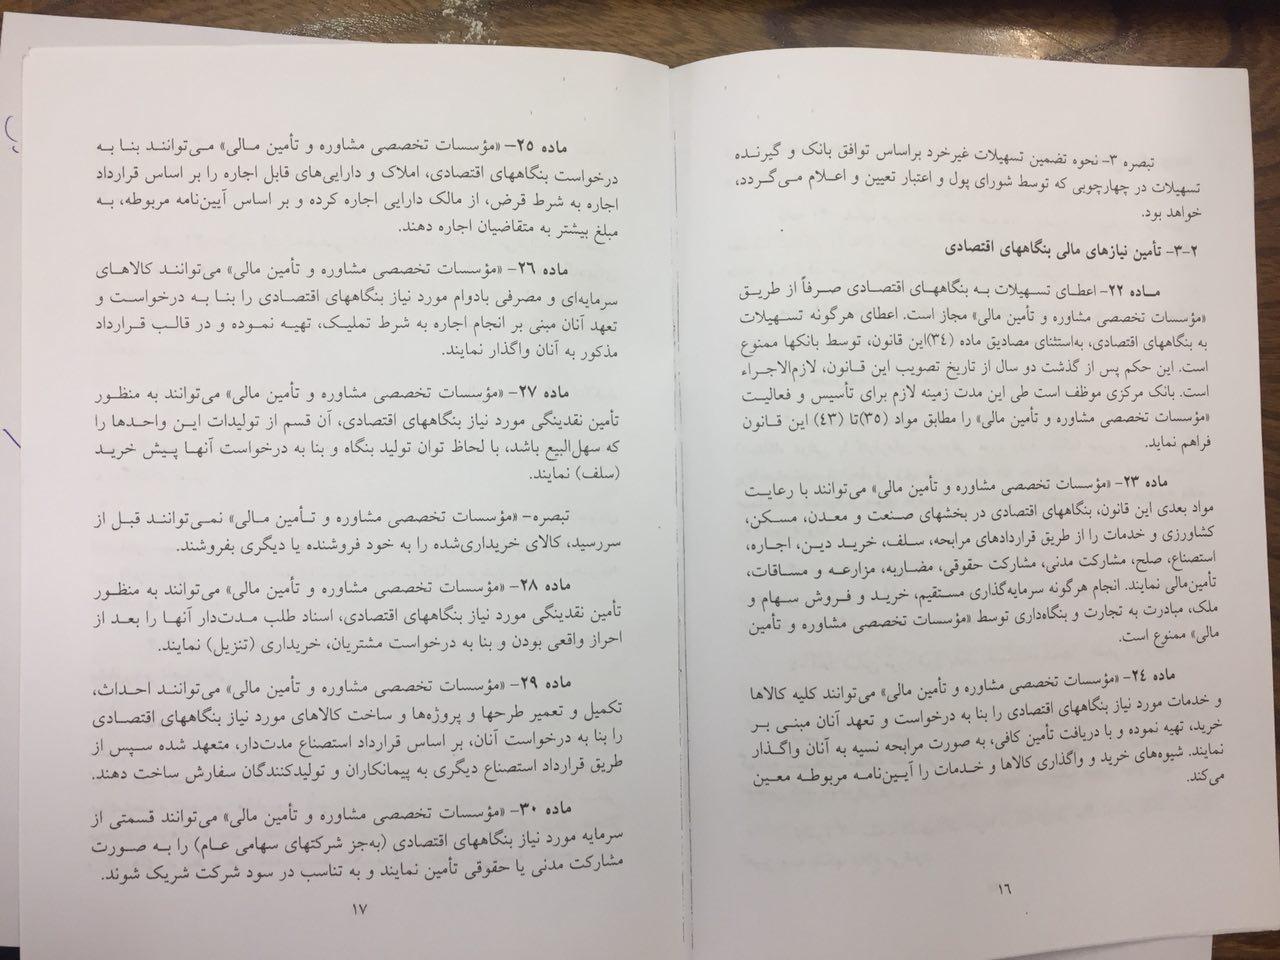 تبصره ۳- نحوه تضمین تسهیلات غیرخرد براساس توافق بانک و گیرنده
تسهیلات در چهارچوبی که توسط شورای پول و اعتبار تعیین و اعلام می‌گردد،
خواهد بود.
۲-۳- تأمین نیازهای مالی بنگاههای اقتصادی
ماده ۲۲- اعطای تسهیلات به بنگاههای اقتصادی صرفاً از طریق
«مؤسسات تخصصی مشاوره و تأمین مالی» مجاز است. اعطای هرگونه تسهیلات
به بنگاههای اقتصادی، به‌استثنای مصادیق ماده (۳۴)این قانون، توسط بانکها ممنوع
است. این حکم پس از گذشت دو سال از تاریخ تصویب این قانون، لازم‌الاجراء
است. بانک مرکزی موظف است طی این مدت زمینه لازم برای تأسیس و فعالیت
«مؤسسات تخصصی مشاوره و تأمین مالی» را مطابق مواد (۳۵)تا (۴۳) این قانون
فراهم نماید.
ماده ۲۳- «مؤسسات تخصصی مشاوره و تأمین مالی» می‌توانند با رعایت
مواد بعدی این قانون، بنگاههای اقتصادی در بخشهای صنعت و معدن، مسکن،
کشاورزی و خدمات را از طریق قراردادهای مرابحه، سلف، خرید دین، اجاره،
استصناع، صلح، مشارکت مدنی، مشارکت حقوقی، مضاربه، مزارعه و مساقات،
تأمین‌مالی نمایند. انجام هرگونه سرمایه‌گذاری مستقیم، خرید و فروش سهام و
ملک، مبادرت به تجارت و بنگاه‌داری توسط «مؤسسات تخصصی مشاوره و تأمین
مالی» ممنوع است.
ماده ۲۴- «مؤسسات تخصصی مشاوره و تأمین مالی» می‌توانند کلیه کالاها
و خدمات مورد نیاز بنگاههای اقتصادی را بنا به درخواست و تعهد آنان مبنی بر
خرید، تهیه نموده و با دریافت تأمین کافی، به صورت مرابحه نسیه به آنان واگذار
نمایند. شیوه‌های خرید و واگذاری کالاها و خدمات را آیین‌نامه مربوطه معین
می‌کند.
۱۶
ماده ۲۵- «مؤسسات تخصصی مشاوره و تأمین مالی» می‌توانند بنا به
درخواست بنگاههای اقتصادی، املاک و دارایی‌های قابل اجاره را بر اساس قرارداد
اجاره به شرط قرض، از مالک دارایی اجاره کرده و بر اساس آیین‌نامه مربوطه، به
مبلغ بیشتر به متقاضیان اجاره دهند.
ماده ۲۶- «مؤسسات تخصصی مشاوره و تأمین مالی» می‌توانند کالاهای
سرمایه‌ای و مصرفی بادوام مورد نیاز بنگاههای اقتصادی را بنا به درخواست و
تعهد آنان مبنی بر انجام اجاره به شرط تملیک، تهیه نموده و در قالب قرارداد
مذکور به آنان واگذار نمایند.
ماده ۲۷- «مؤسسات تخصصی مشاوره و تأمین مالی» می‌توانند به منظور
تأمین نقدینگی مورد نیاز بنگاههای اقتصادی، آن قسم از تولیدات این واحدها را
که سهل‌البیع باشد، با لحاظ توان تولید بنگاه و بنا به درخواست آنها پیش خرید
(سلف) نمایند.
تبصره- «مؤسسات تخصصی مشاوره و تأمین مالی» نمی‌توانند قبل از
سررسید، کالای خریداری‌شده را به خود فروشنده یا دیگری بفروشند.
ماده ۲۸- «مؤسسات تخصصی مشاوره و تأمین مالی» می‌توانند به منظور
تأمین نقدینگی مورد نیاز بنگاههای اقتصادی، اسناد طلب مدت‌دار آنها را بعد از
احراز واقعی بودن و بنا به درخواست مشتریان، خریداری (تنزیل) نمایند.
ماده ۲۹- «مؤسسات تخصصی مشاوره و تأمین مالی» می‌توانند احداث،
تکمیل و تعمیر طرحها و پروژه‌ها و ساخت کالاهای مورد نیاز بنگاههای اقتصادی
را بنا به درخواست آنان، بر اساس قرارداد استصناع مدت‌دار، متعهد شده سپس از
طریق قرارداد استصناع دیگری به پیمانکاران و تولیدکنندگان سفارش ساخت دهند.
ماده ۳۰- «مؤسسات تخصصی مشاوره و تأمین مالی» می‌توانند قسمتی از
سرمایه مورد نیاز بنگاههای اقتصادی (به‌جز شرکتهای سهامی عام) را به صورت
مشارکت مدنی یا حقوقی تأمین نمایند و به تناسب در سود شرکت شریک شوند.
۱۷